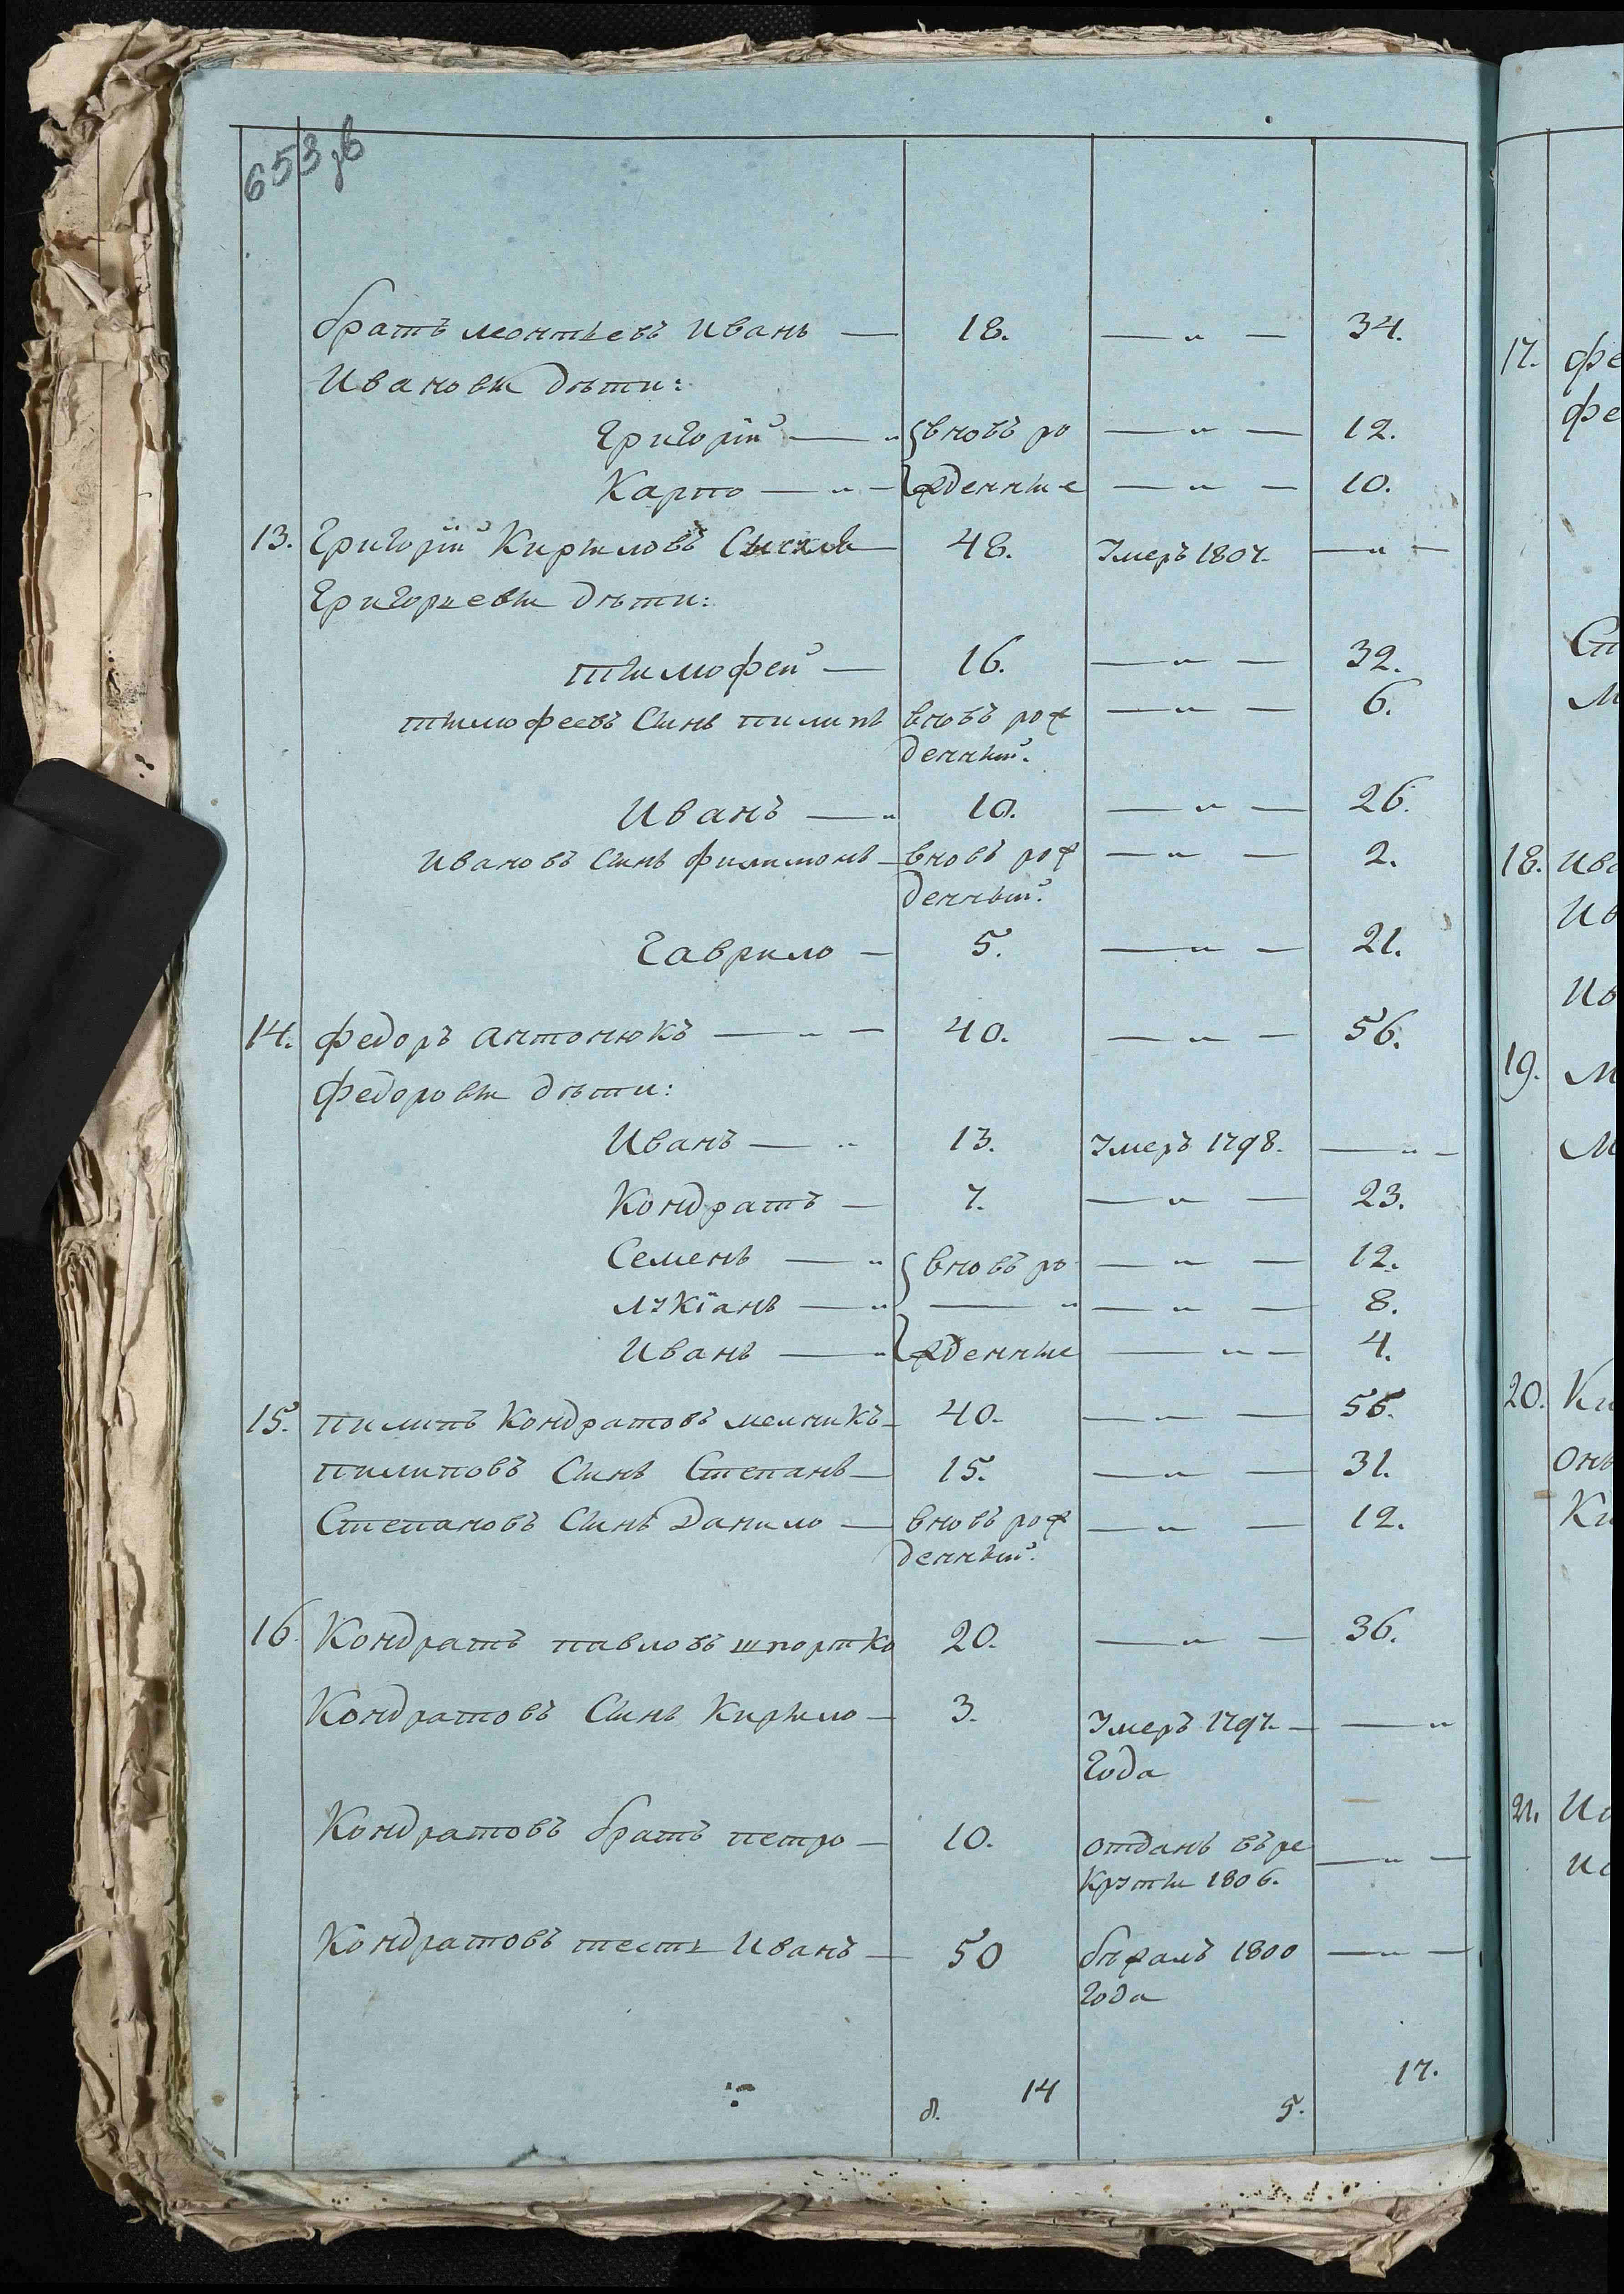 653 зв
братъ леонтьевъ Иванъ — 18. — „ — 34.
Ивановы дѣти:
Григорїй — „ вновь ро — „ — 12.
Карпо — „ — жденные — „ — 10.
13. Григорїй Кирыловъ — 48. Умеръ 1807. — „ —
Григорьевы дѣти:
тимофей — 16. — „ — 32.
тимофеевъ Сынъ пилипъ вновь рож — „ — 6.
денный.
Иванъ — „ 10. — „ — 26.
Ивановъ Сынъ филимонъ — вновь рож — „ — 2.
денный.
Гаврило — 5. — „ — 21.
14. федоръ антонюкъ — „ — 40. — „ — 56.
федоровы дѣти:
Иванъ — „ 13. Умеръ 1798. — „ —
Кондратъ — 7. — „ — 23.
Семенъ — „ вновь ро — „ — 12.
лукїанъ — „ — „ — „ — 8.
Иванъ — „ жденные — „ — 4.
15. пилипъ Кондратовъ мелникъ — 40. — „ — 56.
пилиповъ Сынъ Степанъ — 15. — „ — 31.
Степановъ Сынъ Данило — вновь рож — „ — 12.
денный.
16. Кондратъ павловъ шпортко 20. — „ — 36.
Кондратовъ Сынъ Кирыло — 3. Умеръ 1797. — — „
Года
Кондратовъ братъ петро — 10. отданъ въ ре — „ —
круты 1806.
Кондратовъ тесть Иванъ — 50 бѣжалъ 1800 — „ —
Года
14 5. 17.
17. фе
фе
Сп
М
18. Ива
Ив
Ив
19. М
М
20. Ки
Онъ
Ки
21. Ио
Ио